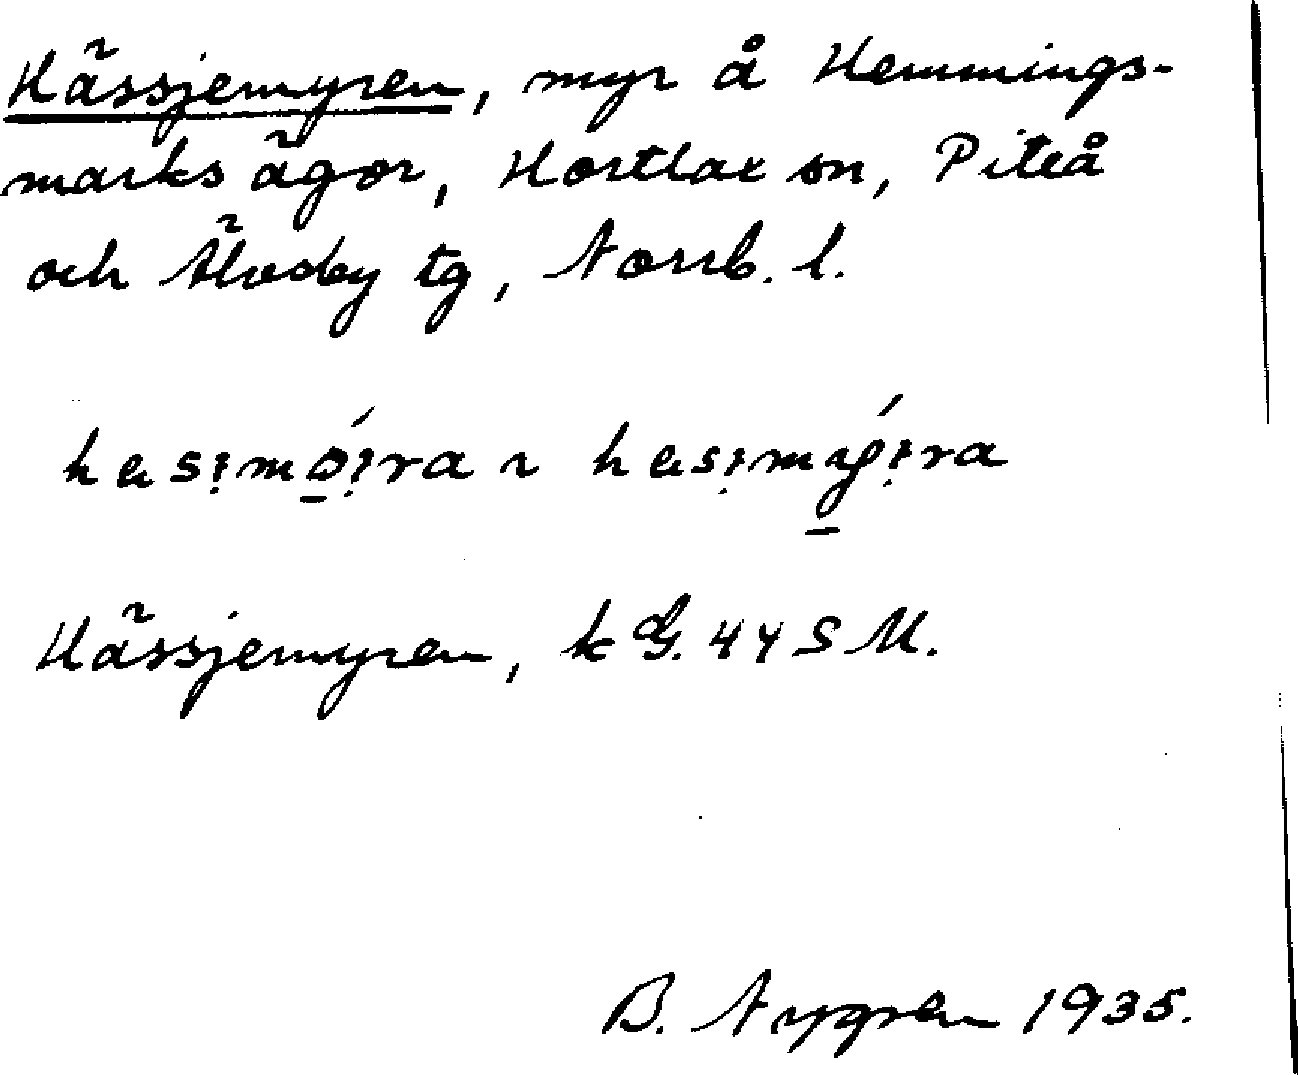 Hässjemyren, myr å Hemmings-
marks ägor, Hortlax sn, Piteå
och Älvsby tg, Norrb. l.
Hässjemyren, k G. 44 S M.
B. Nygren 1935.